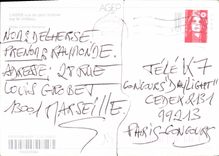 AGEP
NOM: DELHERSE
PRENOM: RAYMONDE.
ADRESSE: 28 RUE
LOUIS GROBET
13001 MARSEILLE.
TÉLÉ K7
CONCOURS "DAYLIGHT"
CEDEX 2B1
99213
PARIS-CONCOURS